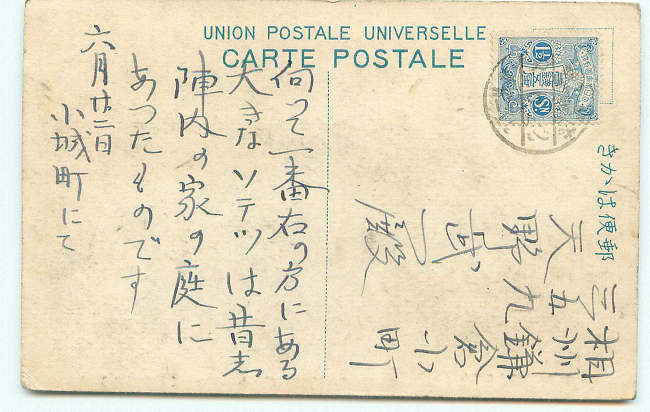 UNION POSTALE UNIVERSELLE
CARTE POSTALE
きかは便郵
相州鎌倉小町
三五九
天野武一殿
向って一番右の方にある
大きなソテツは昔し
陣内の家の庭に
あったものです
六月廿二日
小城町にて
1½